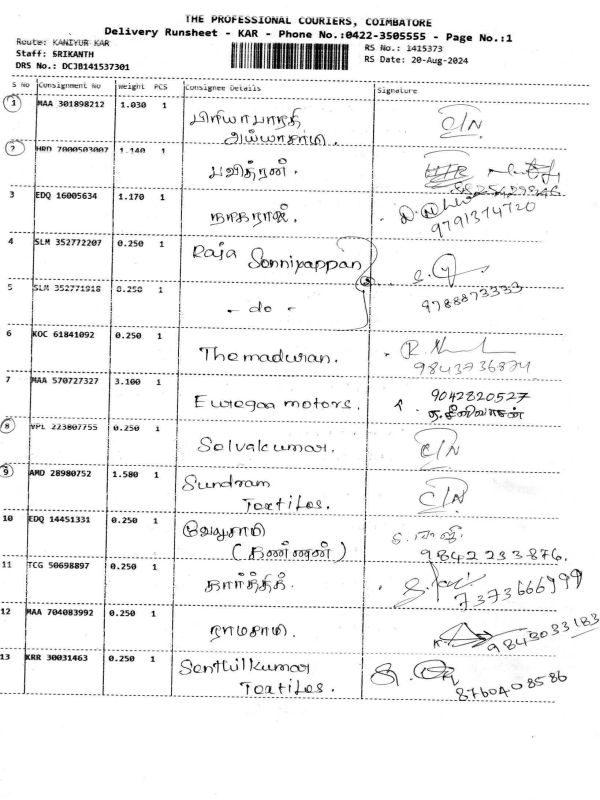 THE PROFESSIONAL COURIERS, COIMBATORE
Delivery Runsheet - KAR - Phone No.:0422-3505555 - Page No.:1
Route: KANIYUR KAR
RS No.: 1415373
Staff: SRIKANTH
RS Date: 20-Aug-2024
DRS No.: DCJB141537301
S No Consignment No Weight PCS Consignee Details Signature
1 MAA 301898212 1.030 1 பிரியா பாரதி
அய்யாசாமி. C/N
2 HRD 7000503007 1.140 1 பவித்ரன்.
3 EDQ 16005634 1.170 1 நாகராஜ்.
9791374720
4 SLM 352772207 0.250 1 Raja Sonniyappan
5 SLM 352771918 8.250 1 - do - 9788873333
6 KOC 61841092 0.250 1 Themaduran.
9843736874
7 MAA 570727327 3.100 1 Euregaa motors. 9042820527
த.சீனிவாசன்
8 VPL 223807755 0.250 1 Selvakumar. C/N
9 AMD 28980752 1.580 1 Sundram
Textiles. C/N
10 EDQ 14451331 0.250 1 வேலுசாமி
(கண்ணன்) 9842233876.
11 TCG 50698897 0.250 1 கார்த்திக். 7373666999
12 MAA 704083992 0.250 1 ராமசாமி. 9843033183
13 KRR 30031463 0.250 1 Senthilkumar
Textiles. 8760408586